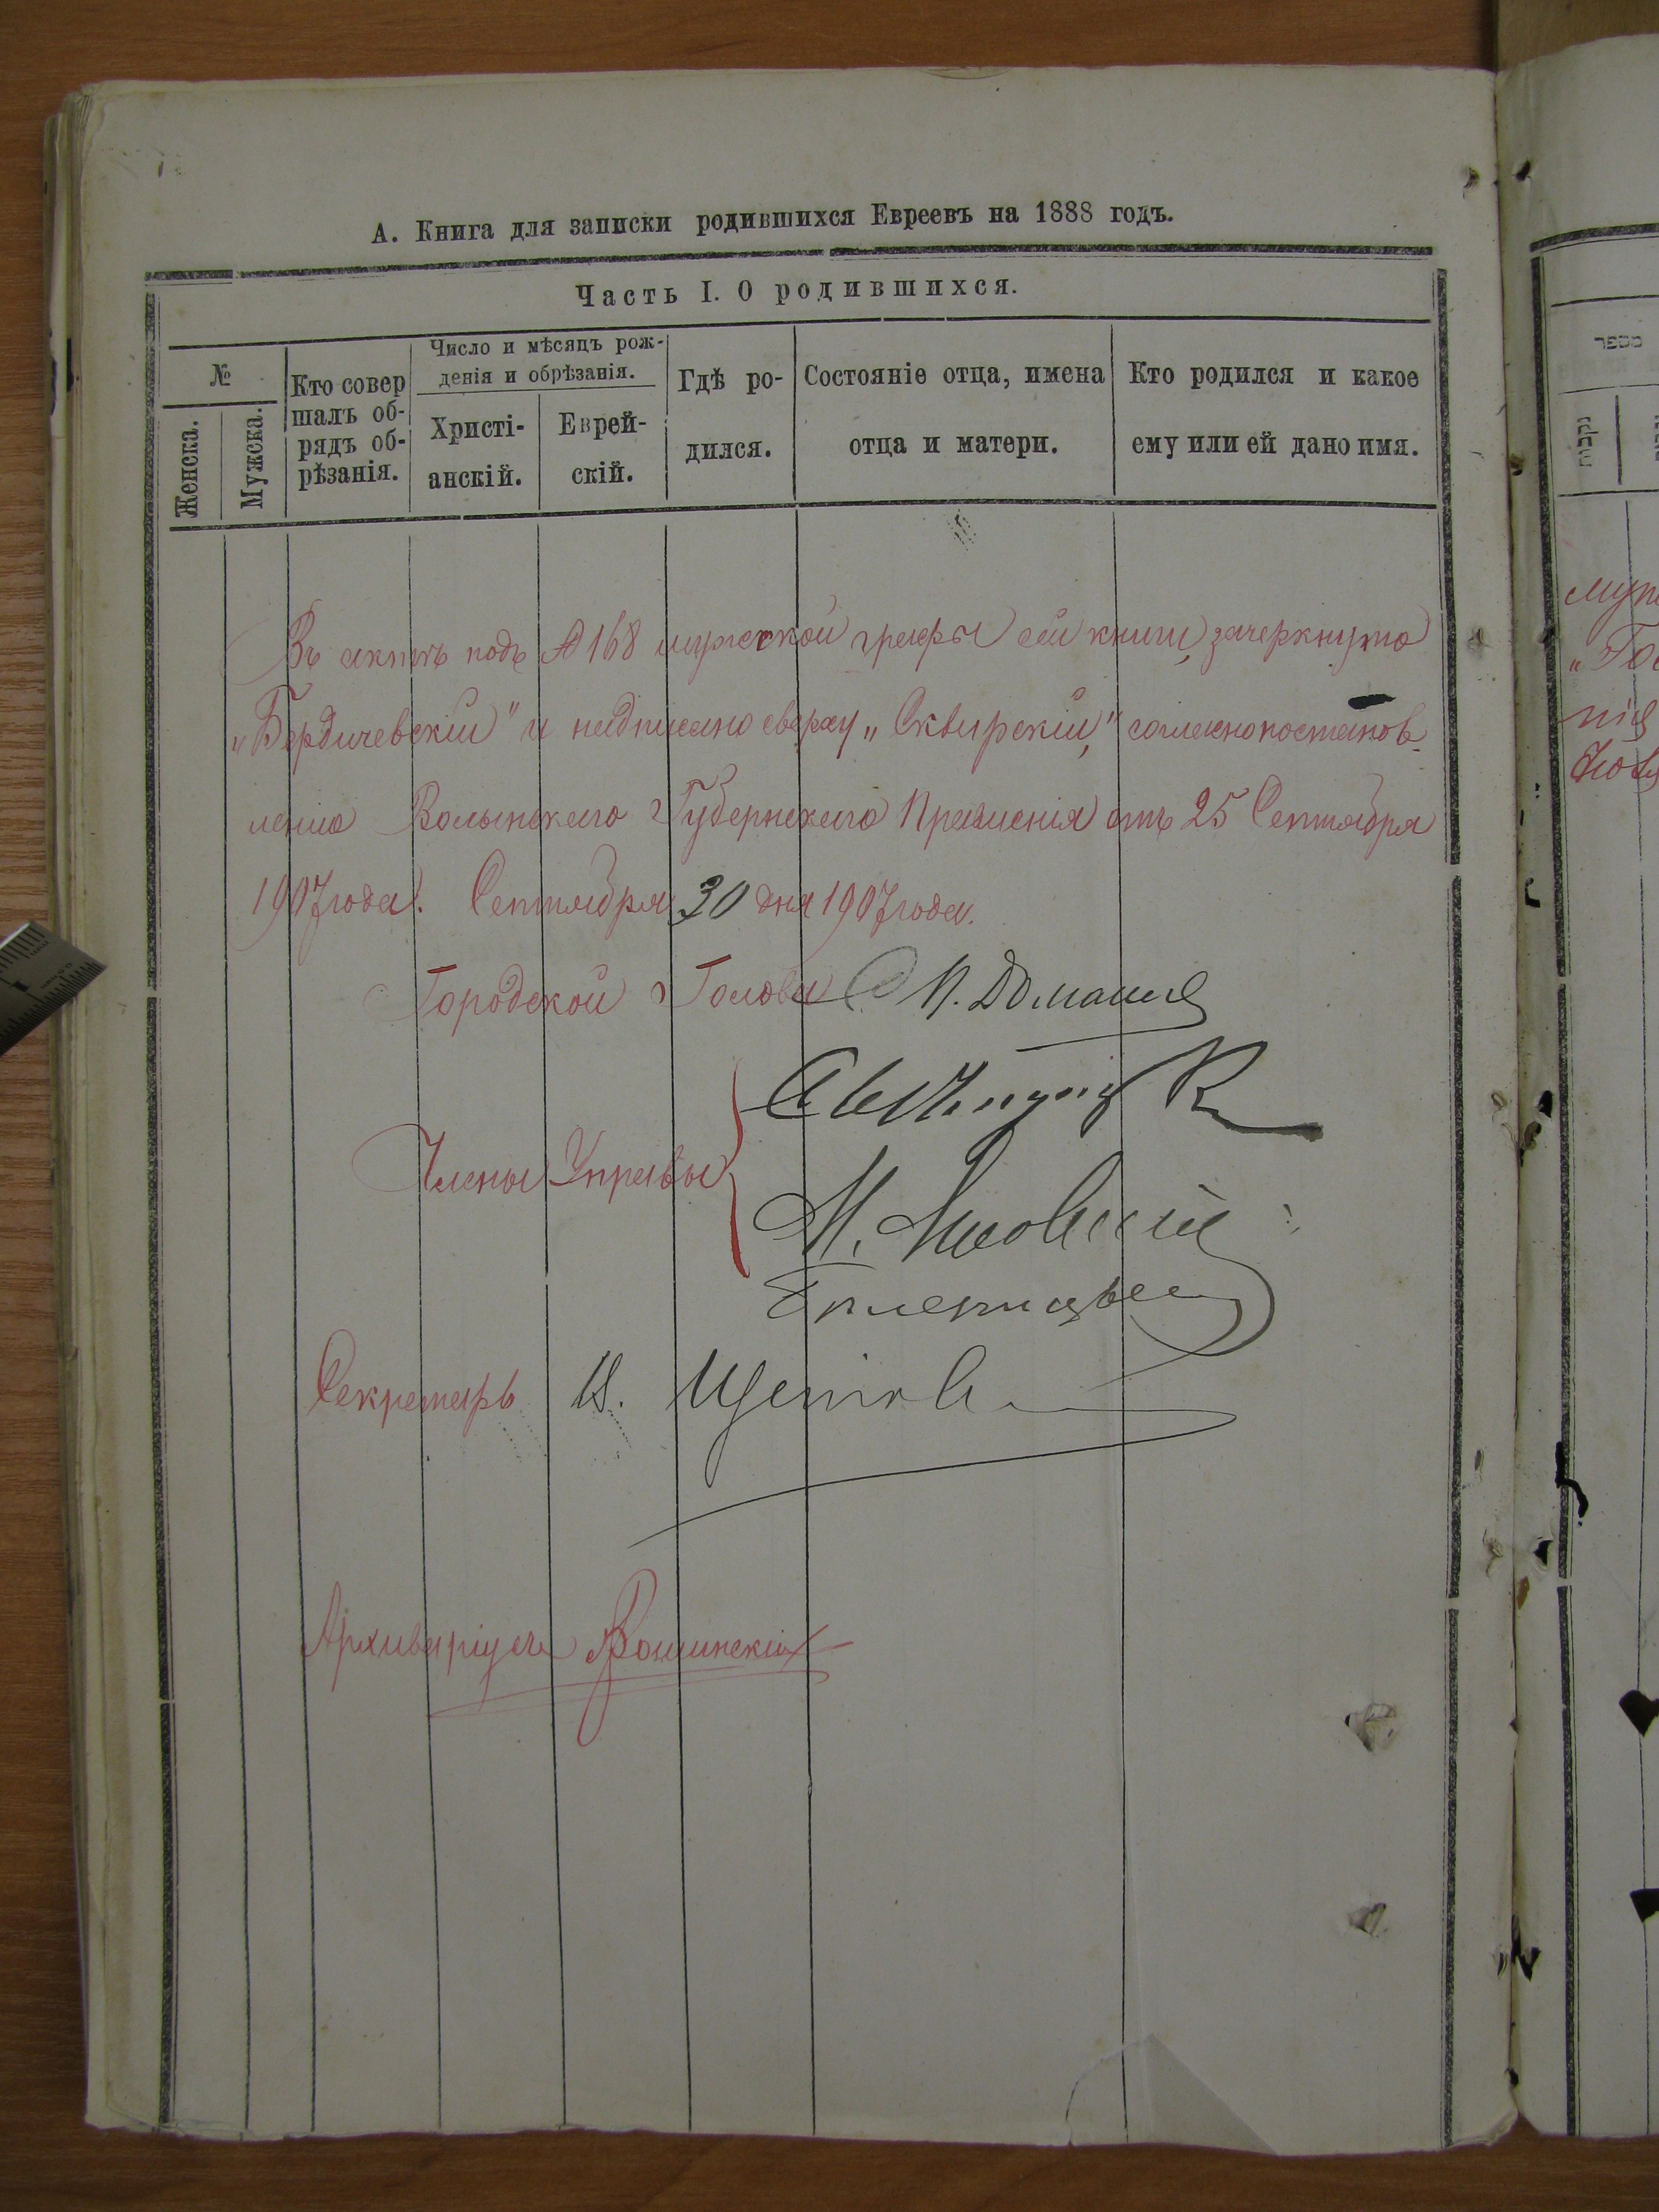 А. Книга для записки родившихся Евреевъ на 1888 годъ.
Часть I. О родившихся.
№
Женска.
Мужска.
Кто совер
шалъ об-
рядъ об-
рѣзанія.
Число и мѣсяцъ рож-
денія и обрѣзанія.
Христі-
анскій.
Еврей-
скій.
Гдѣ ро-
дился.
Состояніе отца, имена
отца и матери.
Кто родился и какое
ему или ей дано имя.
Въ актѣ подъ № 168 мужской графы сей книги, зачеркнуто
„Бердичевскій" и надписано сверху „Сквирскій," согласно постанов-
ленію Волынскаго Губернскаго Правленія отъ 25 Сентября
1907 года. Сентября 30 дня 1907 года.
Городской Голова П.
Члены Управы
М.
Секретарь
Архиваріусъ